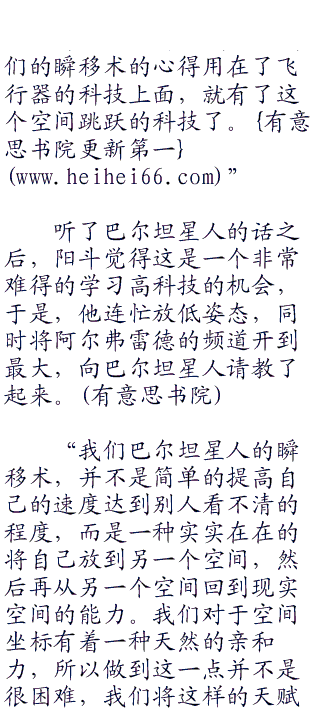 们的瞬移术的心得用在了飞
行器的科技上面，就有了这
个空间跳跃的科技了。{有意
思书院更新第一}
(www.heihei66.com)”
听了巴尔坦星人的话之
后，阳斗觉得这是一个非常
难得的学习高科技的机会，
于是，他连忙放低姿态，同
时将阿尔弗雷德的频道开到
最大，向巴尔坦星人请教了
起来。(有意思书院)
“我们巴尔坦星人的瞬
移术，并不是简单的提高自
己的速度达到别人看不清的
程度，而是一种实实在在的
将自己放到另一个空间，然
后再从另一个空间回到现实
空间的能力。我们对于空间
坐标有着一种天然的亲和
力，所以做到这一点并不是
很困难，我们将这样的天赋